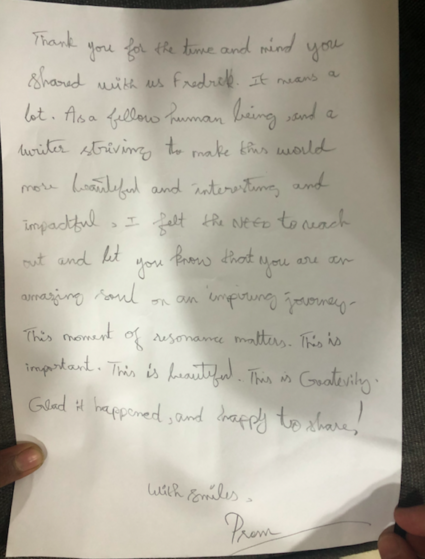 Thank you for the time and mind you
shared with us Fredrik. It means a
lot. As a fellow human being and a
writer striving to make this world
more beautiful and interesting and
impactful, I felt the NEED to reach
out and let you know that you are an
amazing soul on an inspiring journey-
This moment of resonance matters. This is
important. This is beautiful. This is Gratevity.
Glad it happened, and happy to share!
With Smiles,
Prem